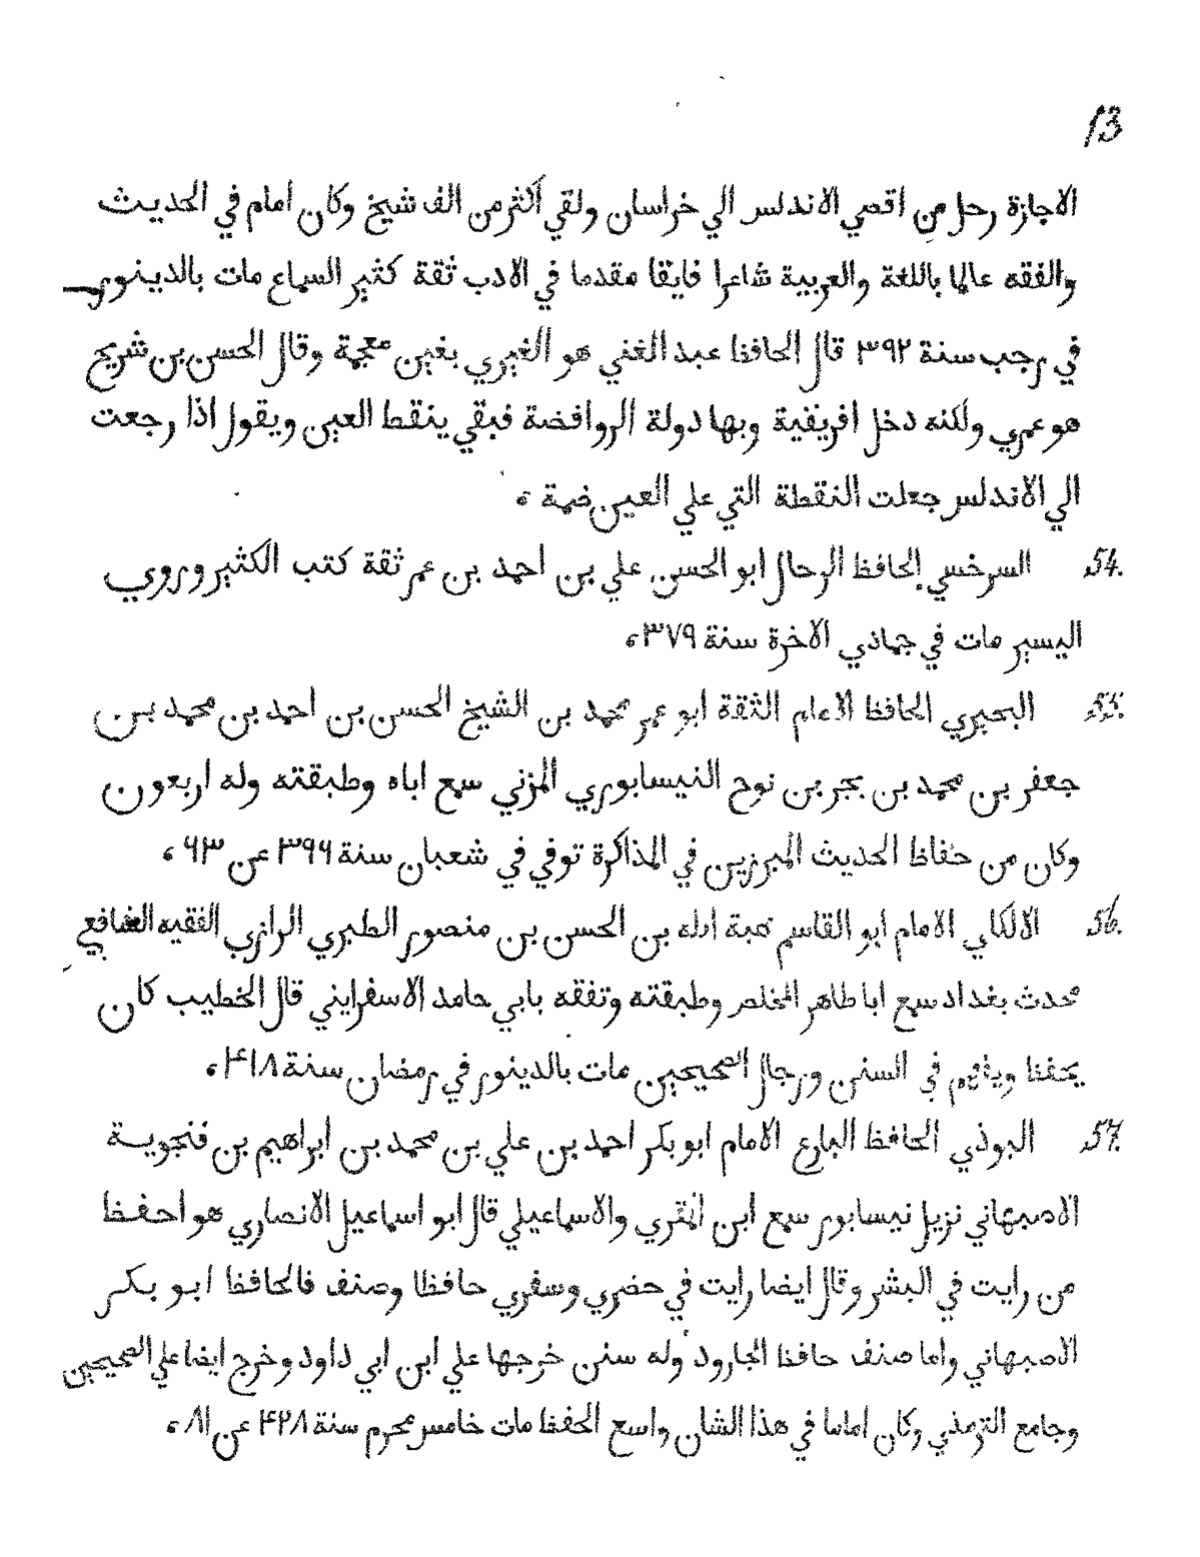 13
الاجازة رحل من اقصي الاندلس الي خراسان ولقي اكثر من الف شيخ وكان امام في الحديث
والفقه عالما باللغة والعربية شاعرا فايقا مقدما في الادب ثقة كثير السماع مات بالدينور
في رجب سنة ٣٩٢ قال الحافظ عبد الغني هو الغمري بغين معجمة وقال الحسن بن شريح
هو عمري ولكنه دخل افريقية وبها دولة الروافضة فبقي ينقط العين ويقول اذا رجعت
الي الاندلس جعلت النقطة التي علي العين ضمة ،
54. السرخسي الحافظ الرحال ابو الحسن علي بن احمد بن عمر ثقة كتب الكثير وروي
اليسير مات في جمادي الاخرة سنة ٣٧٩ ،
55. البحيري الحافظ الامام الثقة ابو عمر محمد بن الشيخ الحسن بن احمد بن محمد بن
جعفر بن محمد بن بجر بن نوح النيسابوري المزني سمع اباه وطبقته وله اربعون
وكان من حفاظ الحديث المبرزين في المذاكرة توفي في شعبان سنة ٣٩٦ عن ٦٣ ،
56. الالكاي الامام ابو القاسم هبة الله بن الحسن بن منصور الطبري الرازي الفقيه الشافعي
محدث بغداد سمع ابا طاهر المخلص وطبقته وتفقه بابي حامد الاسفرايني قال الخطيب كان
يحفظ ويفهم في السنن ورجال الصحيحين مات بالدينور في رمضان سنة ٤١٨ ،
57. البوذي الحافظ البارع الامام ابو بكر احمد بن علي بن محمد بن ابراهيم بن فنجوية
الاصبهاني نزيل نيسابور سمع ابن المقري والاسماعيلي قال ابو اسماعيل الانصاري هو احفظ
من رايت في البشر وقال ايضا رايت في حضري وسفري حافظا وصنف فالحافظ ابو بكر
الاصبهاني واما صنف حافظ الجارود وله سنن خرجها علي ابن ابي داود وخرج ايضا علي الصحيحين
وجامع الترمذي وكان اماما في هذا الشان واسع الحفظ مات خامس محرم سنة ٤٢٨ عن ٨١ ،